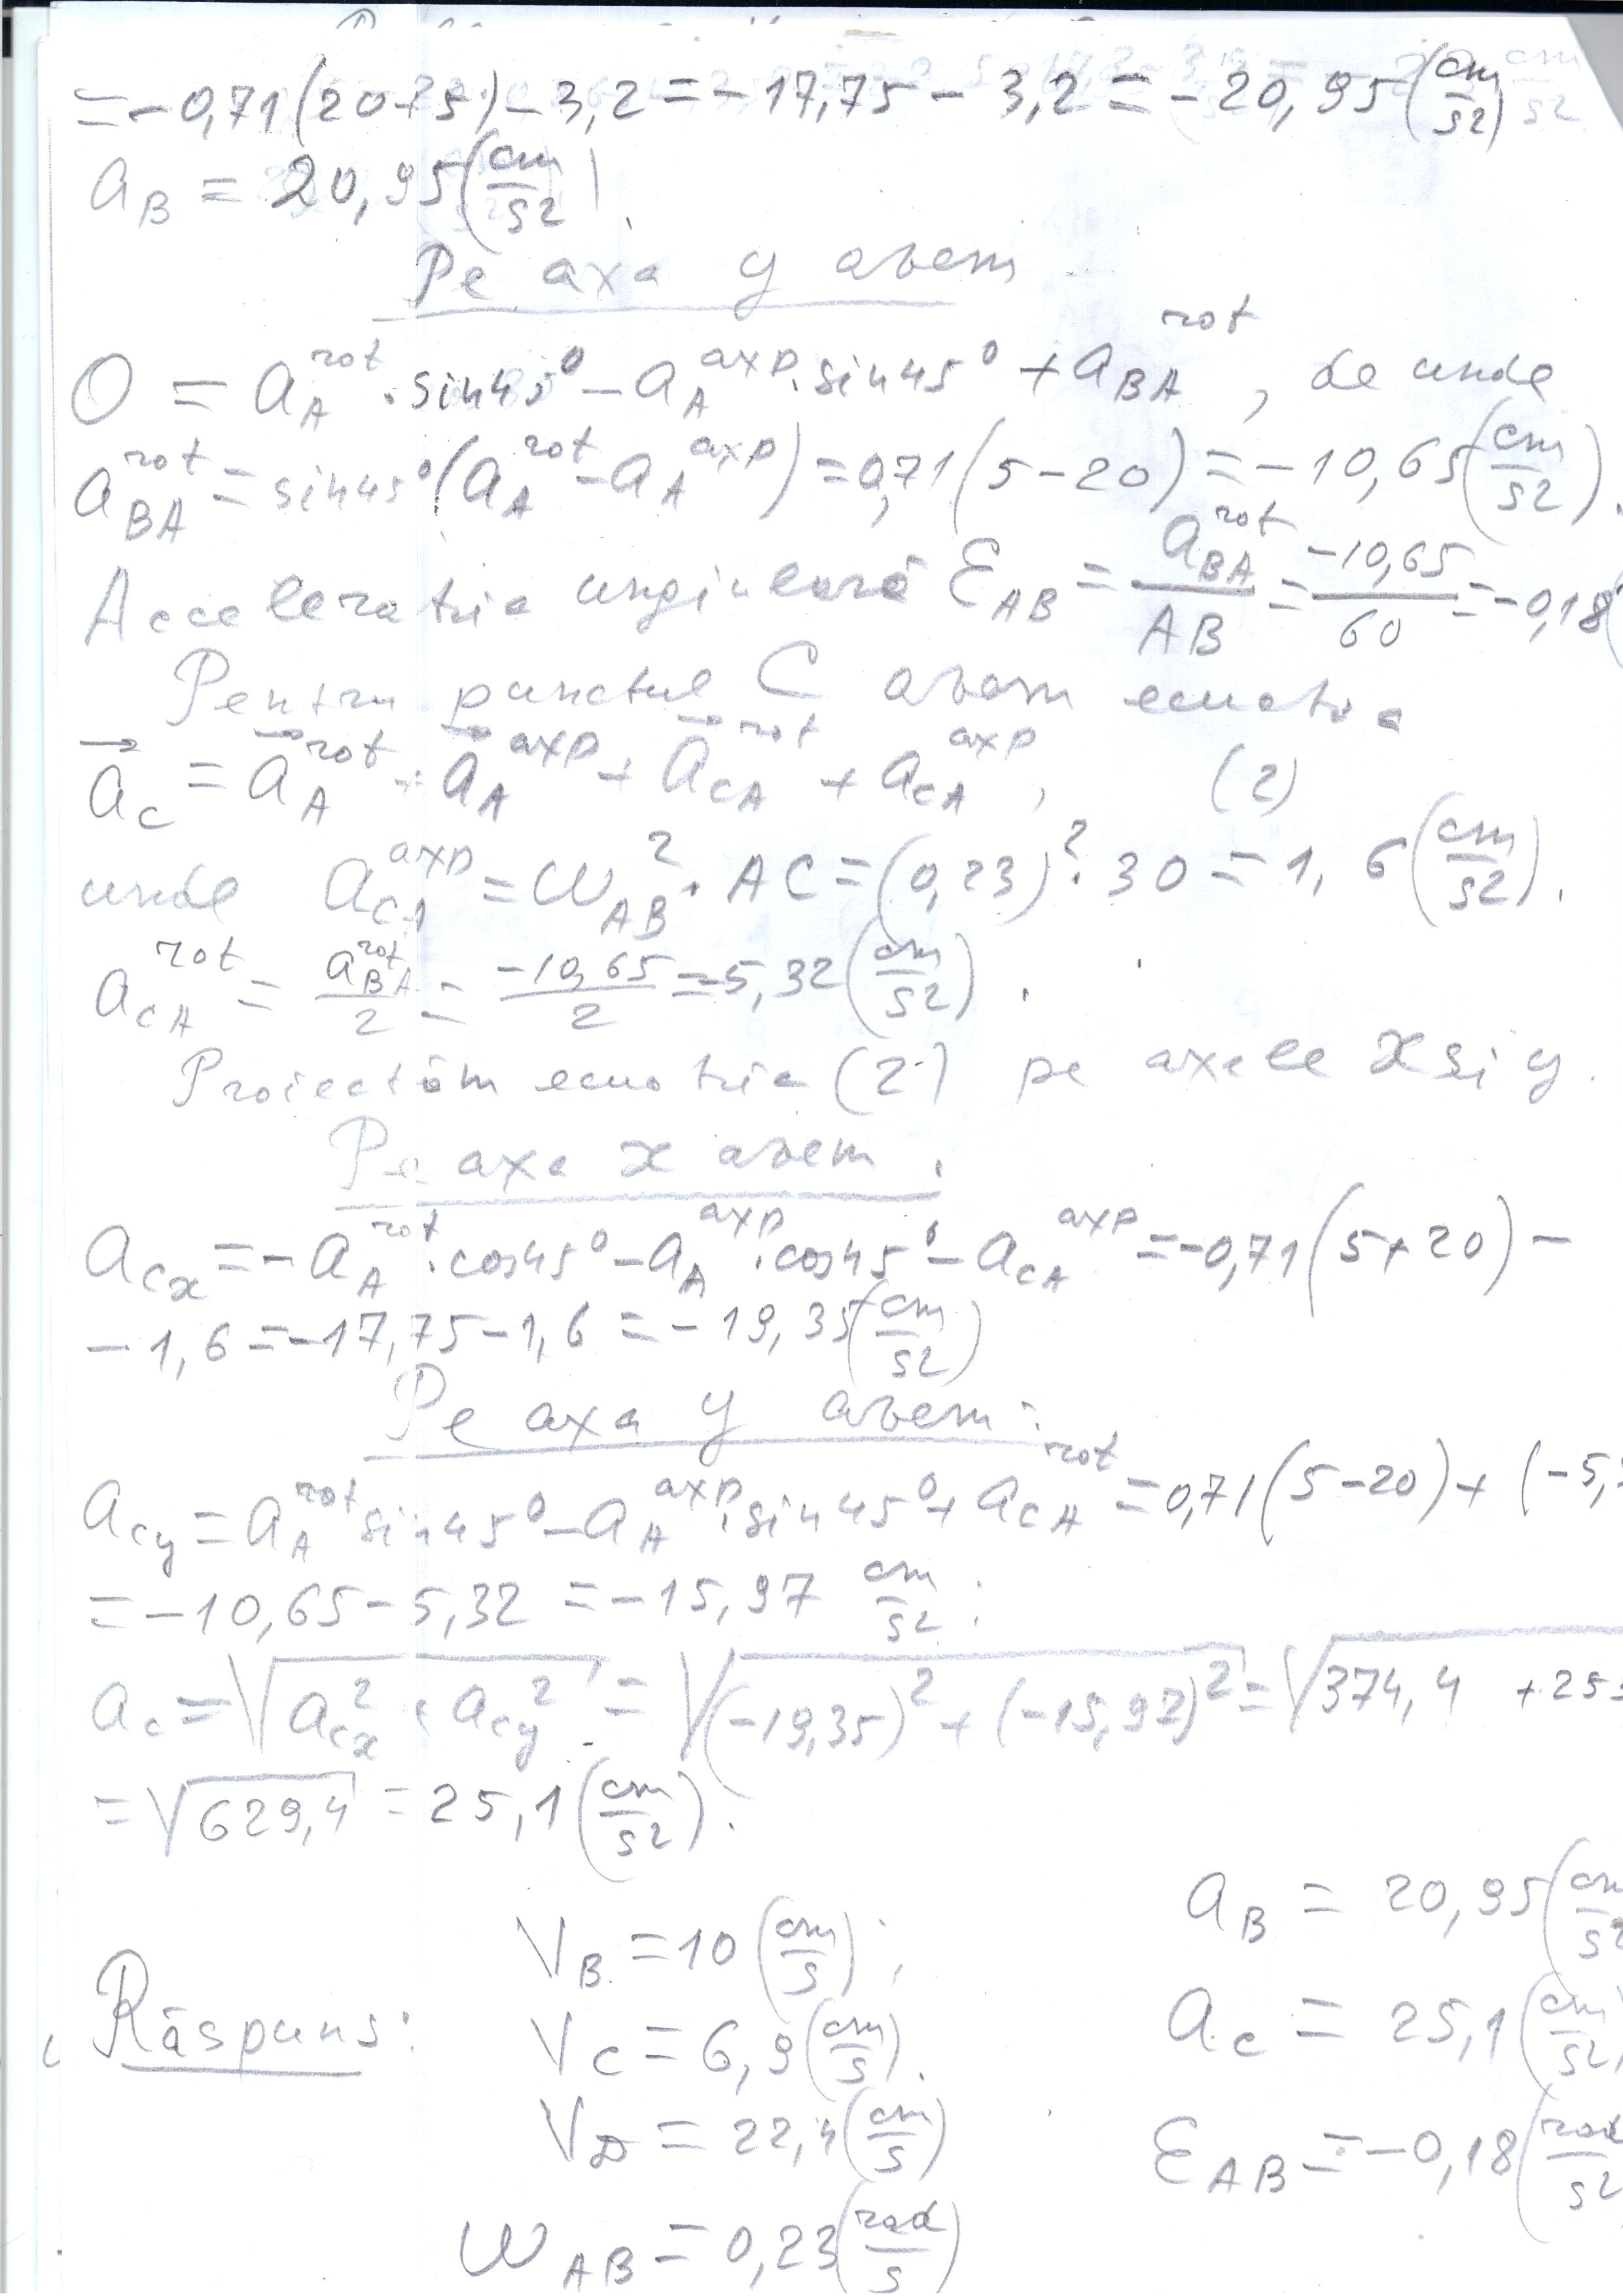 = -0,71(20+5) - 3,2 = -17,75 - 3,2 = -20,95 (cm/s2)
aB = 20,95 (cm/s2).
Pe axa y avem
0 = aA^rot · sin45° - aA^axp · sin45° + aBA^rot, de unde
aBA^rot = sin45° (aA^rot - aA^axp) = 0,71(5-20) = -10,65 (cm/s2).
Acceleratia unghiulară εAB = aBA^rot/AB = -10,65/60 = -0,18(
Pentru punctul C avem ecuatia
→aC = →aA^rot + →aA^axp + →aCA^rot + aCA^axp, (2)
unde aCA^axp = ωAB^2 · AC = (0,23)^2 · 30 = 1,6 (cm/s2).
aCA^rot = aBA^rot/2 = -10,65/2 = -5,32 (cm/s2).
Proiectăm ecuatia (2) pe axele x si y.
Pe axa x avem:
aCx = -aA^rot · cos45° - aA^axp · cos45° - aCA^axp = -0,71(5+20) -
- 1,6 = -17,75 - 1,6 = -19,35 (cm/s2)
Pe axa y avem:
aCy = aA^rot sin45° - aA^axp · sin45° + aCA^rot = 0,71(5-20) + (-5,
= -10,65 - 5,32 = -15,97 cm/s2;
aC = √(aCx^2 + aCy^2) = √((-19,35)^2 + (-15,97)^2) = √(374,4 + 255
= √629,4 = 25,1 (cm/s2).
Răspuns:
VB = 10 (cm/s);
VC = 6,9 (cm/s).
VD = 22,4 (cm/s)
ωAB = 0,23 (rad/s)
aB = 20,95 (cm/s2
aC = 25,1 (cm/s2)
εAB = -0,18 (rad/s2